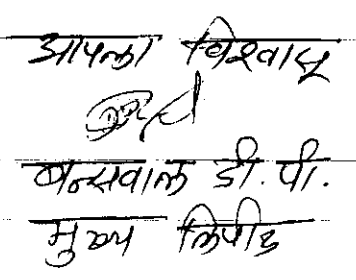 आपला विश्वासू
बनसवाल डी. पी.
मुख्य लिपीक